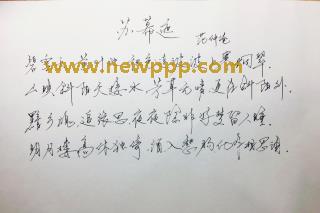 苏幕遮
范仲淹
碧云天,黄叶地,秋色连波,波上寒烟翠.
山映斜阳天接水,芳草无情,更在斜阳外.
黯乡魂,追旅思,夜夜除非,好梦留人睡.
明月楼高休独倚,酒入愁肠,化作相思泪.
www.newppp.com